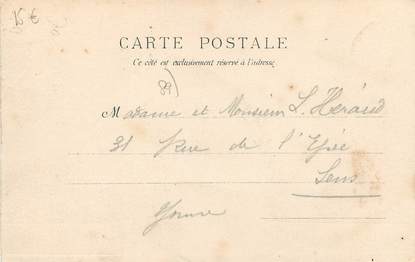 15 €
CARTE POSTALE
Ce côté est exclusivement réservé à l'adresse
89)
Madame et Monsieur L. Héraud
31 Rue de l'Ypée
Sens
Yonne